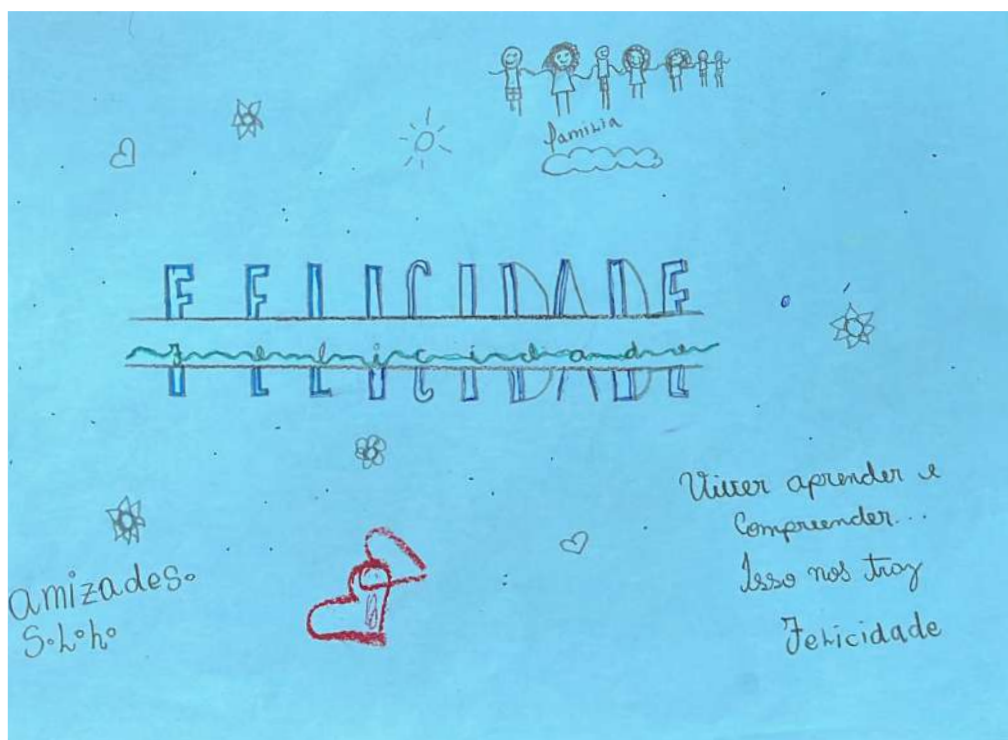 familia
FELICIDADE
felicidade
amizades.
S.L.h.
Viver aprender e
Compreender...
Isso nos traz
Felicidade